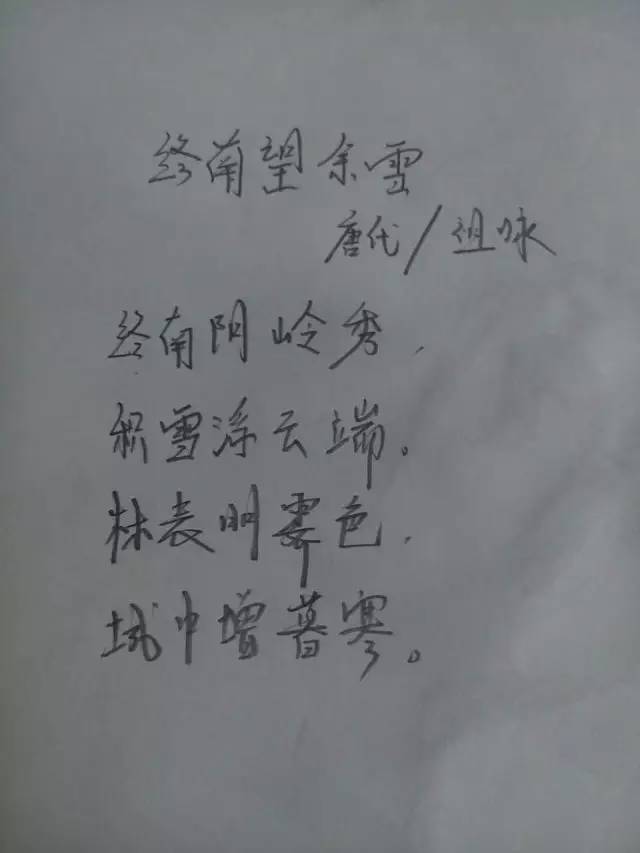 终南望余雪
唐代/祖咏
终南阴岭秀,
积雪浮云端。
林表明霁色,
城中增暮寒。